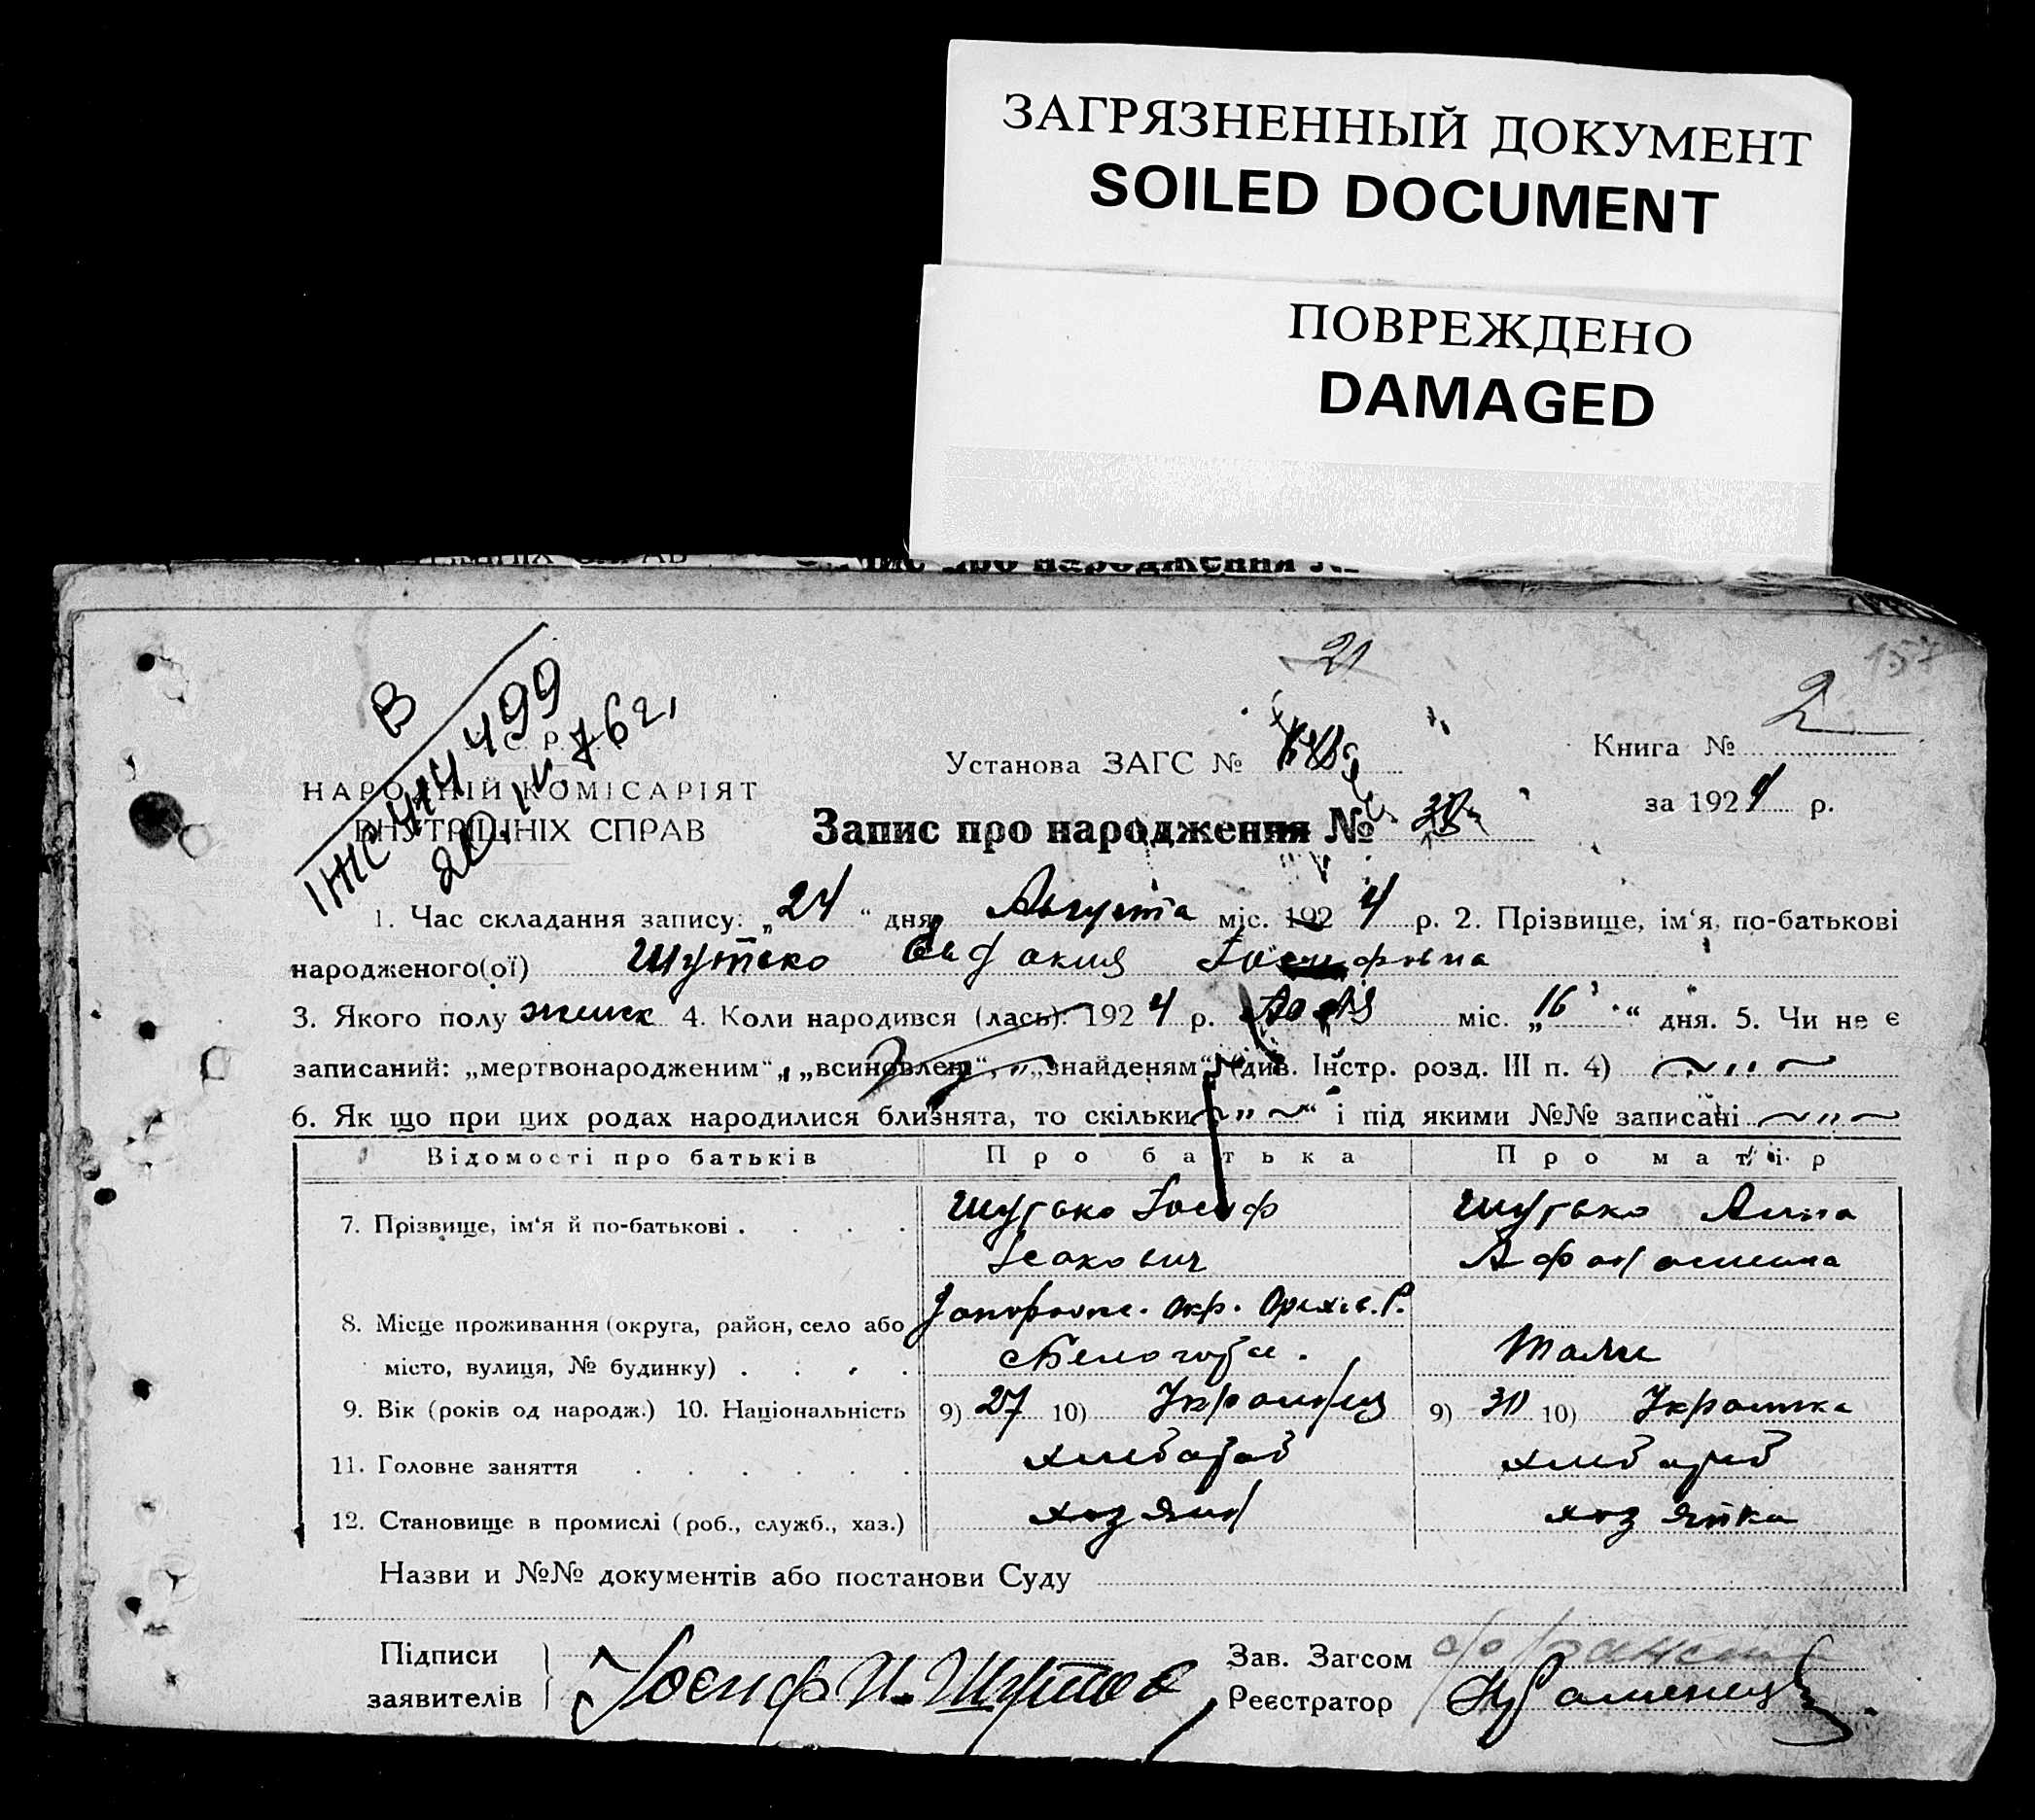 ЗАГРЯЗНЕННЫЙ ДОКУМЕНТ
SOILED DOCUMENT
ПОВРЕЖДЕНО
DAMAGED
Запис про народження №
21
157
В
ІЖС 414499
20.IV.76г.
2
НАРОДНІЙ КОМІСАРІЯТ
ВНУТРІШНІХ СПРАВ
Установа ЗАГС №
Книга №
за 1924 р.
Запис про народження №
1. Час складання запису: „24“ дня Августа міс. 1924 р. 2. Прізвище, ім‘я, по-батькові
народженого(ої) Шутько Евдокия Іосифовна
3. Якого полу женск 4. Коли народився (лась). 1924 р. міс. „16“ дня. 5. Чи не є
записаний: „мертвонародженим“, „всиновлен“, „знайденям“ (див. Інстр. розд. III п. 4) ~ „ ~
6. Як що при цих родах народилися близнята, то скільки ~ „ ~ і під якими №№ записані ~ „ ~
Відомості про батьків Про батька Про матір
7. Прізвище, ім‘я й по-батькові . . . . Шутько Іосиф Шутько Анна
Ісакович Афанасиевна
8. Місце проживання (округа, район, село або Запорожс. Окр. Орехів. Р.
місто, вулиця, № будинку) . . . . с Белогорье. Тоже
9. Вік (років од народж.) 10. Національність 9) 27 10) Украинец 9) 30 10) Украинка
11. Головне заняття . . . . . . хлебороб хлебороб
12. Становище в промислі (роб., служб., хаз.) хозяин хозяйка
Назви и №№ документів або постанови Суду
Підписи Зав. Загсом
заявителів Іосиф И. Шутько Реєстратор